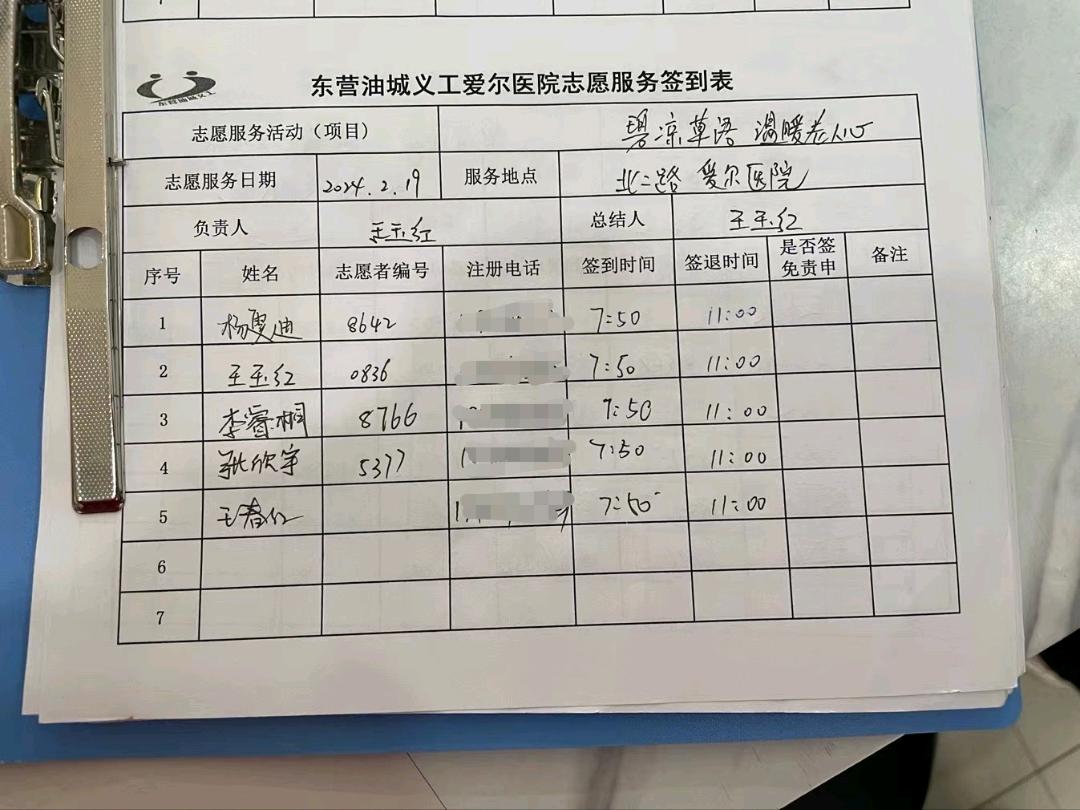 7
东营油城义工
东营油城义工爱尔医院志愿服务签到表
志愿服务活动（项目） 碧凉草语 温暖老人心
志愿服务日期 2024.2.19 服务地点 北二路 爱尔医院
负责人 王玉红 总结人 王玉红
序号 姓名 志愿者编号 注册电话 签到时间 签退时间 是否签免责申 备注
1 杨曼迪 8642 7:50 11:00
2 王玉红 0836 7:50 11:00
3 李睿桐 8766 7:50 11:00
4 张欣宇 5377 7:50 11:00
5 王春红 7:50 11:00
6
7